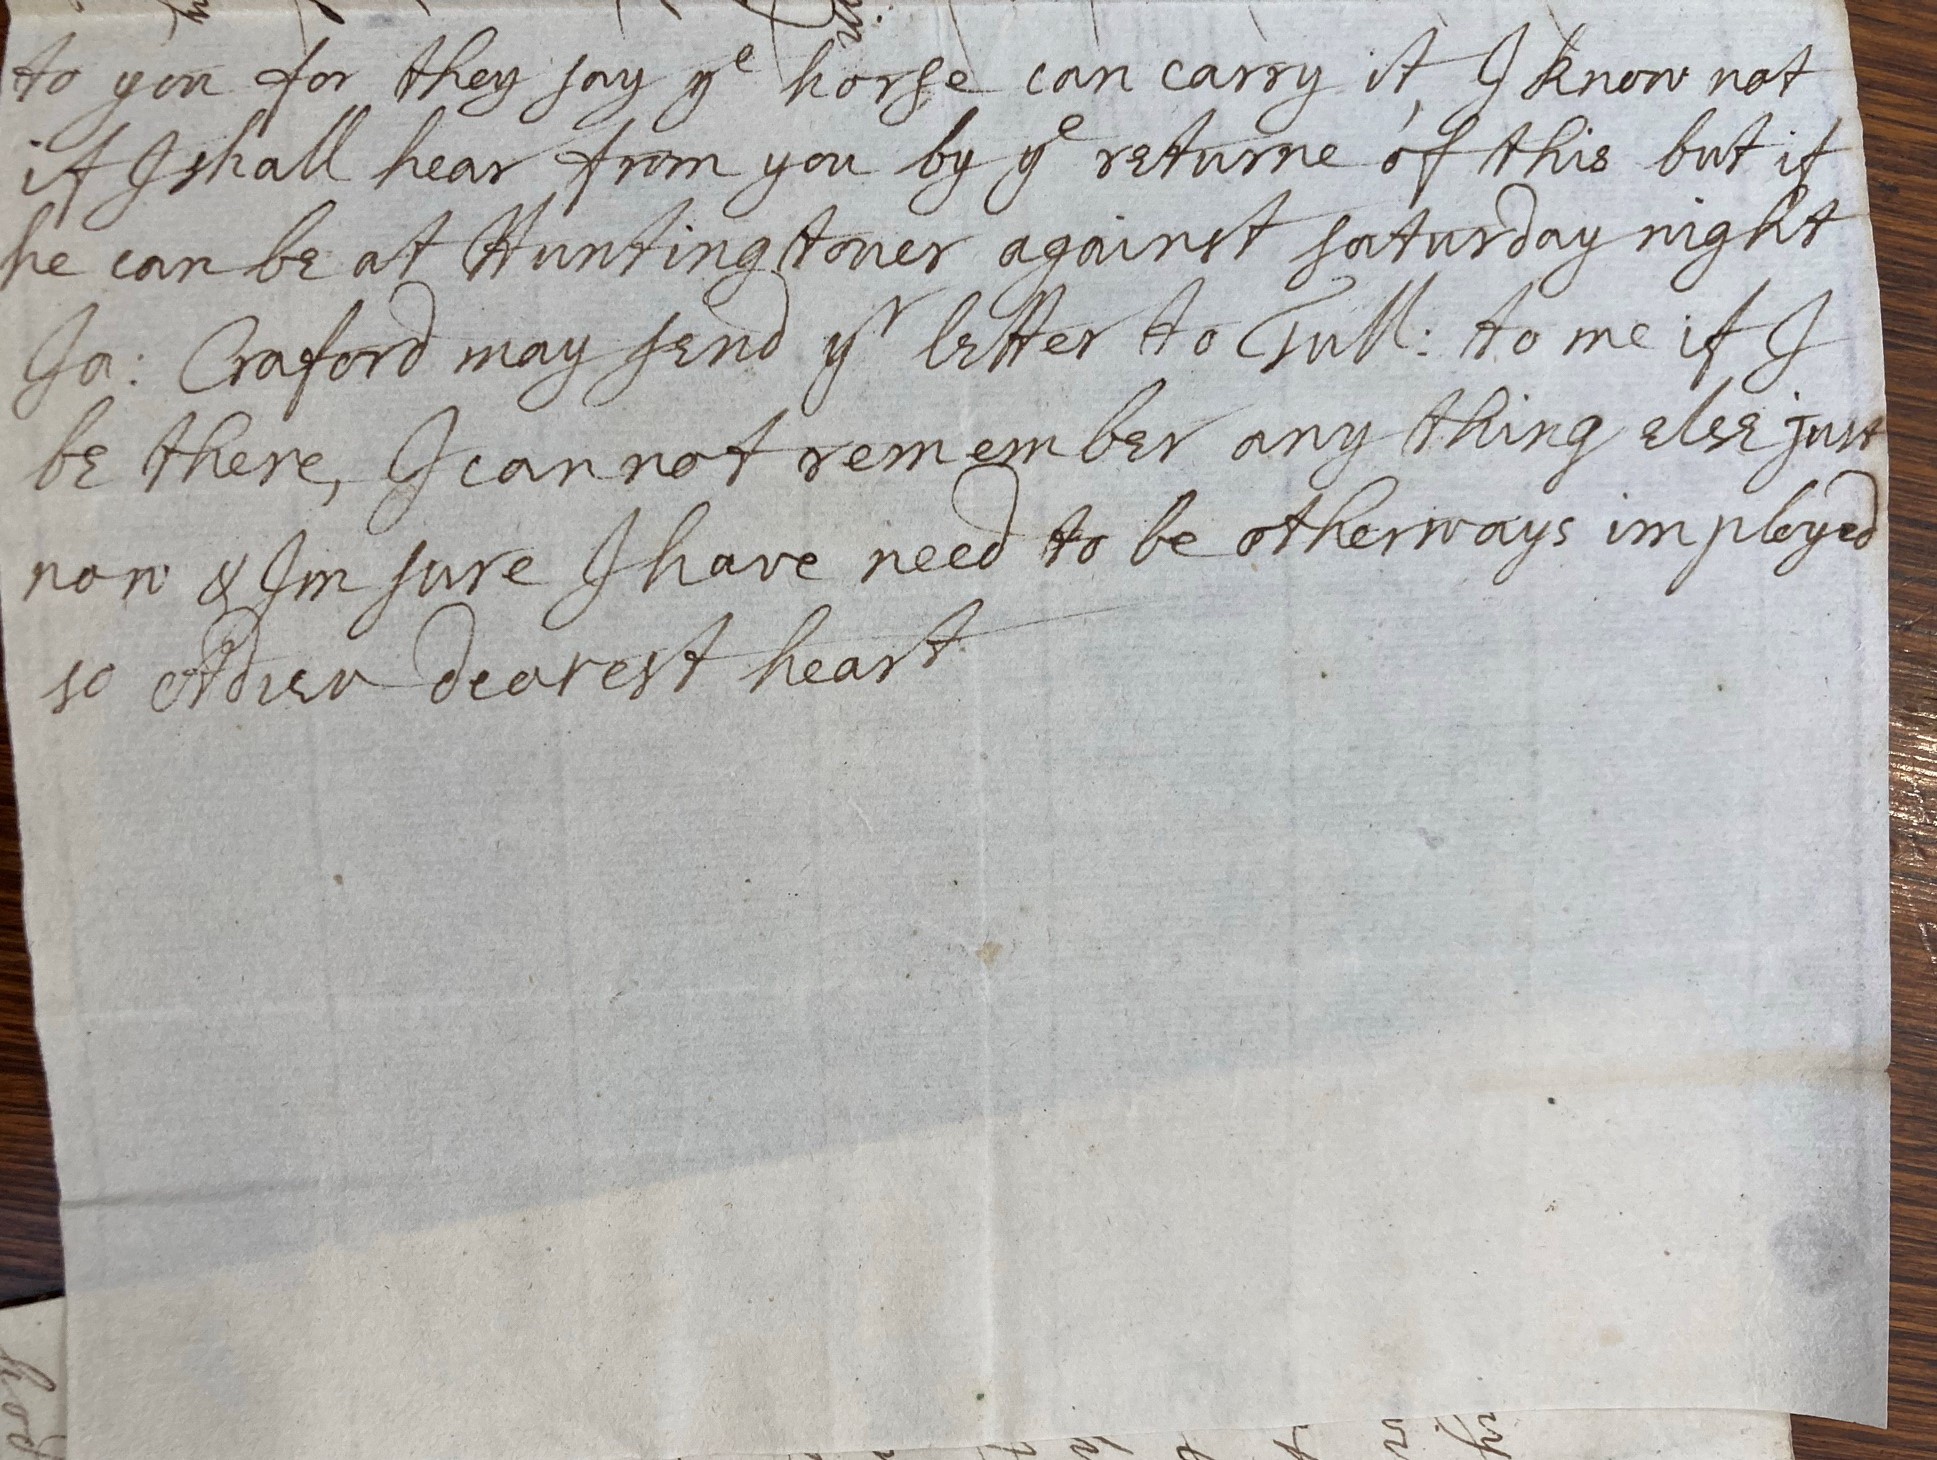 to you for they say ye horse can carry it, I know not
if I shall hear from you by ye returne of this but if
he can be at Huntingtouer against saturday night
Ja: Craford may send yr letter to Tull: to me if I
be there, I cannot remember any thing else just
now & Im sure I have need to be otherways imployed
so Adieu dearest heart